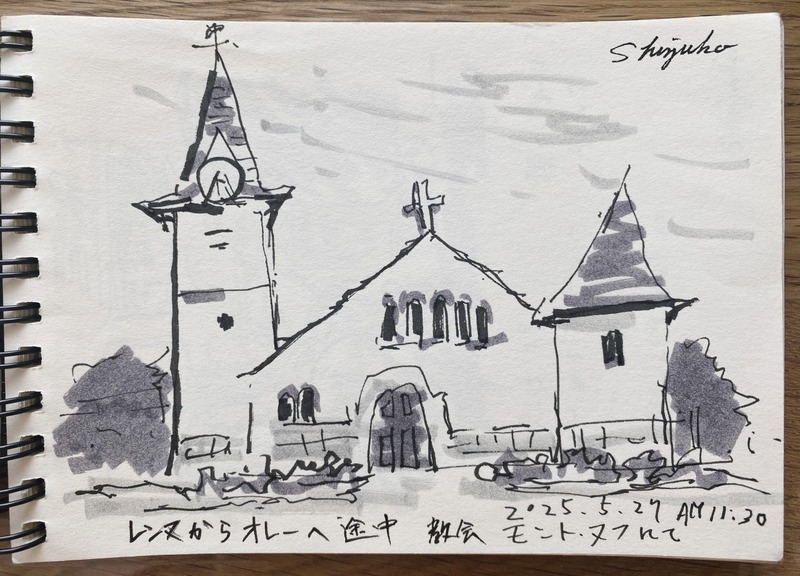 Shizuko
2025.5.27 AM 11:30
レンヌからオレーへ途中 教会 モント・ヌフにて